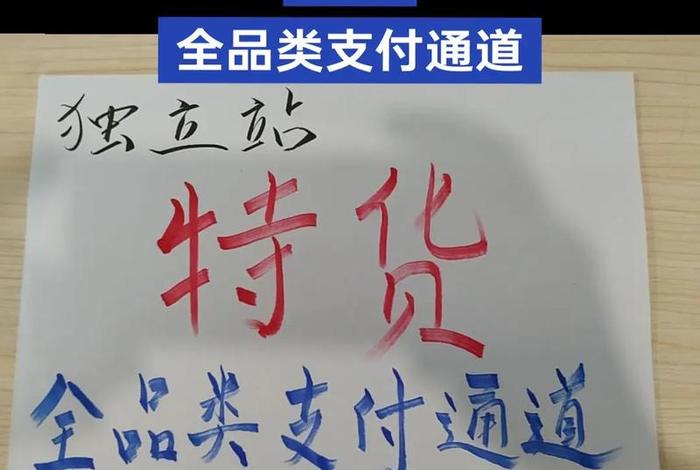 全品类支付通道
独立站
特货
全品类支付通道